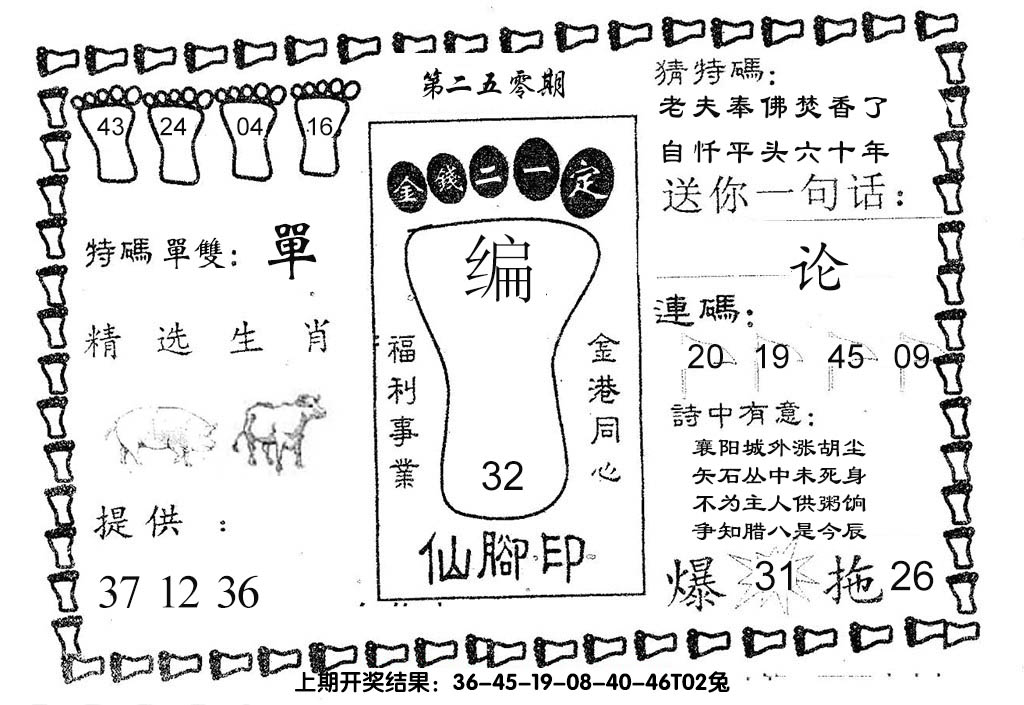 第二五零期
43 24 04 16
特碼單雙：單
精选生肖
提供：
37 12 36
金錢二一定
编
福利事業
金港同心
32
仙腳印
猜特碼：
老夫奉佛焚香了
自忏平头六十年
送你一句话：
论
連碼：
20 19 45 09
詩中有意：
襄阳城外涨胡尘
矢石丛中未死身
不为主人供粥饷
争知腊八是今辰
爆 31 拖 26
上期开奖结果：36-45-19-08-40-46T02兔